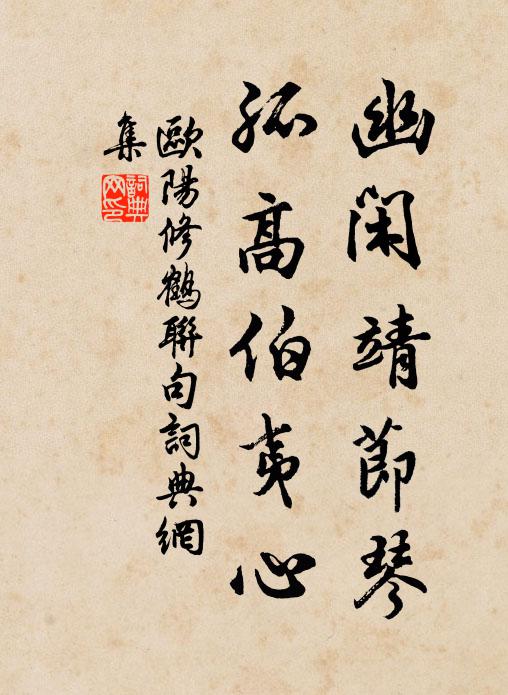 幽閑靖節琴
孤高伯夷心
歐陽修鶴聯句詞典網
集
詞典
网印